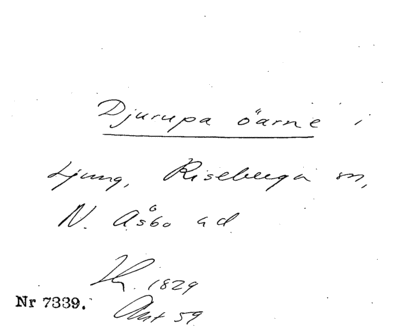 Djurupa öarne i
Ljung, Riseberga sn,
N. Åsbo hd
1829
Nr 7339.
Akt 59